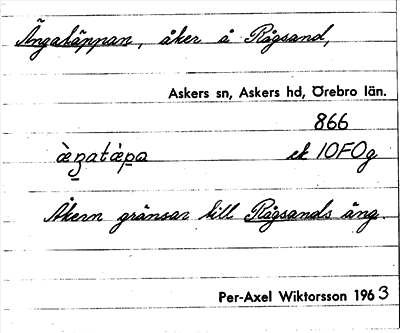 Ängatäppan, åker å Rågsand,
Askers sn, Askers hd, Örebro län.
866
ek 10F0g
Åkern gränsar till Rågsands äng.
Per-Axel Wiktorsson 1963